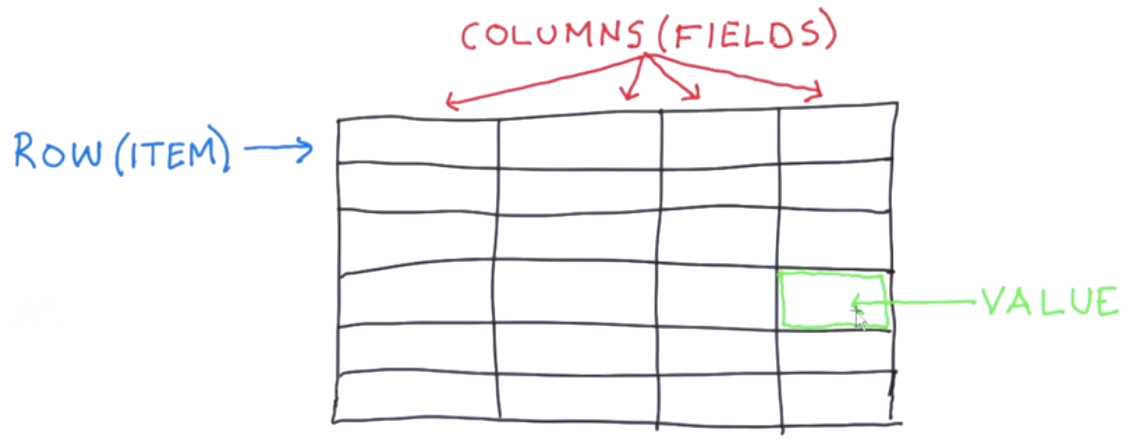 COLUMNS (FIELDS)
ROW (ITEM)
VALUE